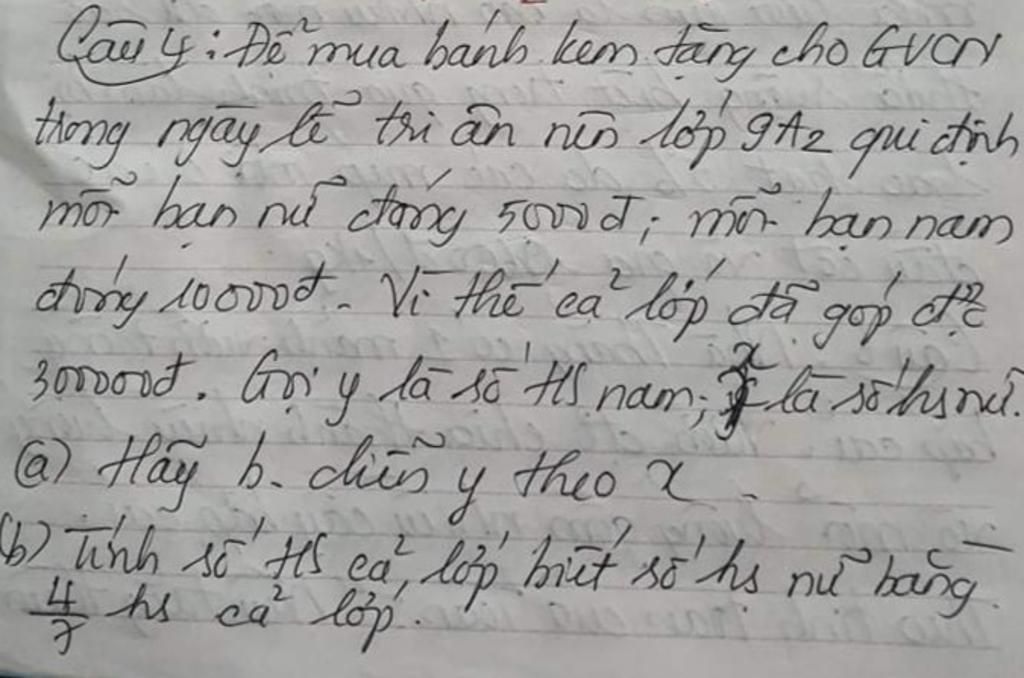 Câu 4: Để mua bánh kem tặng cho GVCN
trong ngày lễ tri ân nên lớp 9A2 qui định
mỗi bạn nữ đóng 5000đ; mỗi bạn nam
đóng 10000đ. Vì thế cả lớp đã góp đc
300000đ. Gọi y là số HS nam; x là số hs nữ.
(a) Hãy b. diễn y theo x.
(b) Tính số HS cả lớp biết số hs nữ bằng
4/7 hs cả lớp.